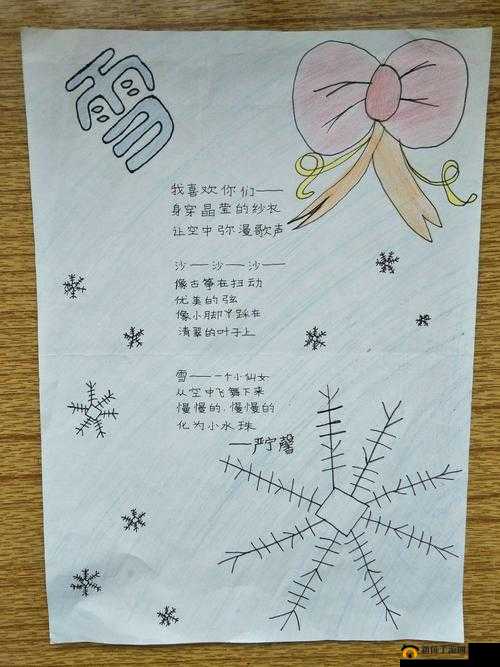 雪
我喜欢你们——
身穿晶莹的纱衣
让空中弥漫歌声
沙——沙——沙——
像古筝在扫动
优美的弦
像小脚丫踩在
清翠的叶子上
雪——一个小仙女
从空中飞舞下来
慢慢的,慢慢的
化为小水珠